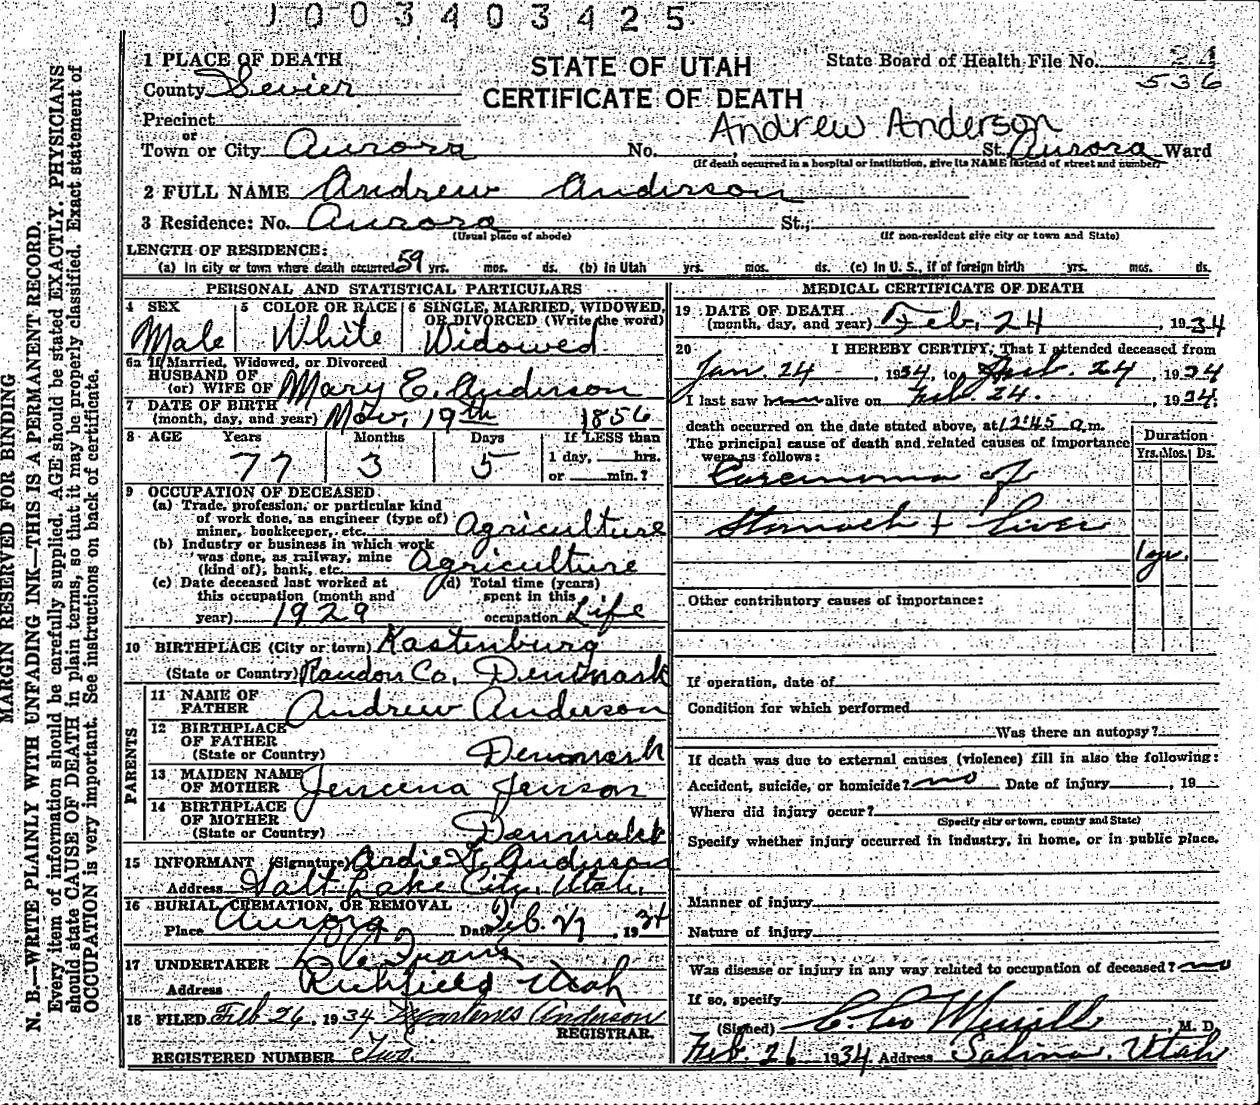 1003403425
MARGIN RESERVED FOR BINDING
N. B.—WRITE PLAINLY WITH UNFADING INK—THIS IS A PERMANENT RECORD.
Every item of information should be carefully supplied. AGE should be stated EXACTLY. PHYSICIANS
should state CAUSE OF DEATH in plain terms, so that it may be properly classified. Exact statement of
OCCUPATION is very important. See instructions on back of certificate.
STATE OF UTAH
CERTIFICATE OF DEATH
State Board of Health File No. 24
536
1 PLACE OF DEATH
County Sevier
Precinct
or
Town or City Aurora No. , St. Aurora Ward
Andrew Anderson
(If death occurred in a hospital or institution, give its NAME instead of street and number)
2 FULL NAME Andrew Anderson
3 Residence: No. Aurora St.,
(Usual place of abode) (If non-resident give city or town and State)
LENGTH OF RESIDENCE:
(a) In city or town where death occurred 59 yrs. mos. ds. (b) In Utah yrs. mos. ds. (c) In U. S., if of foreign birth yrs. mos. ds.
PERSONAL AND STATISTICAL PARTICULARS
4 SEX 5 COLOR OR RACE 6 SINGLE, MARRIED, WIDOWED,
OR DIVORCED (Write the word)
Male White Widowed
6a If Married, Widowed, or Divorced
HUSBAND OF
(or) WIFE OF Mary E. Anderson
7 DATE OF BIRTH
(month, day, and year) Nov. 19th 1856
8 AGE Years Months Days If LESS than
77 3 5 1 day, hrs.
or min.?
9 OCCUPATION OF DECEASED
(a) Trade, profession, or particular kind
of work done, as engineer (type of)
miner, bookkeeper, etc. Agriculture
(b) Industry or business in which work
was done, as railway, mine
(kind of), bank, etc. Agriculture
(c) Date deceased last worked at (d) Total time (years)
this occupation (month and spent in this
year) 1929 occupation Life
10 BIRTHPLACE (City or town) Kastenburg
(State or Country) Co. Denmark
PARENTS
11 NAME OF
FATHER Andrew Anderson
12 BIRTHPLACE
OF FATHER
(State or Country) Denmark
13 MAIDEN NAME
OF MOTHER Jencena Jenson
14 BIRTHPLACE
OF MOTHER
(State or Country) Denmark
15 INFORMANT (Signature) Anderson
Address Salt Lake City, Utah.
16 BURIAL, CREMATION, OR REMOVAL
Place Aurora Date Feb. 27, 1934
17 UNDERTAKER
Address Richfield Utah
18 FILED Feb 26, 1934 Anderson
REGISTRAR.
REGISTERED NUMBER Two.
MEDICAL CERTIFICATE OF DEATH
19 DATE OF DEATH
(month, day, and year) Feb. 24, 1934
20 I HEREBY CERTIFY, That I attended deceased from
Jan. 24, 1934, to Feb. 24, 1934
I last saw h alive on Feb. 24. 1934.
death occurred on the date stated above, at 12:45 a.m.
The principal cause of death and related causes of importance
were as follows:
Duration
Yrs. Mos. Ds.
Carcinoma of
Stomach + Liver
1 yr.
Other contributory causes of importance:
If operation, date of
Condition for which performed
Was there an autopsy?
If death was due to external causes (violence) fill in also the following:
Accident, suicide, or homicide? no Date of injury , 19
Where did injury occur?
(Specify city or town, county and State)
Specify whether injury occurred in industry, in home, or in public place.
Manner of injury
Nature of injury
Was disease or injury in any way related to occupation of deceased? no
If so, specify
(Signed) C. Leo Merrill, M. D.
Feb. 26 1934 Address Salina, Utah